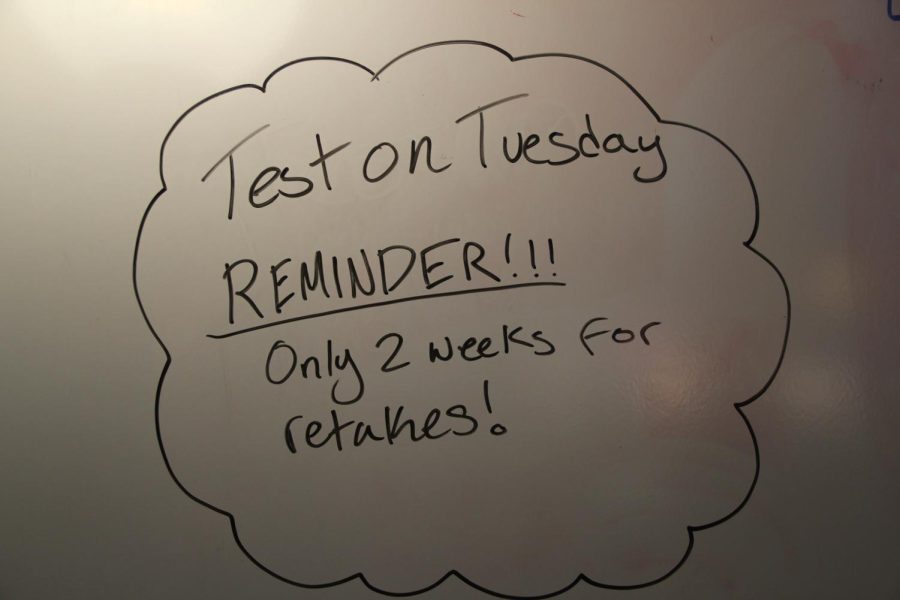 Test on Tuesday
REMINDER!!!
Only 2 weeks for
retakes!